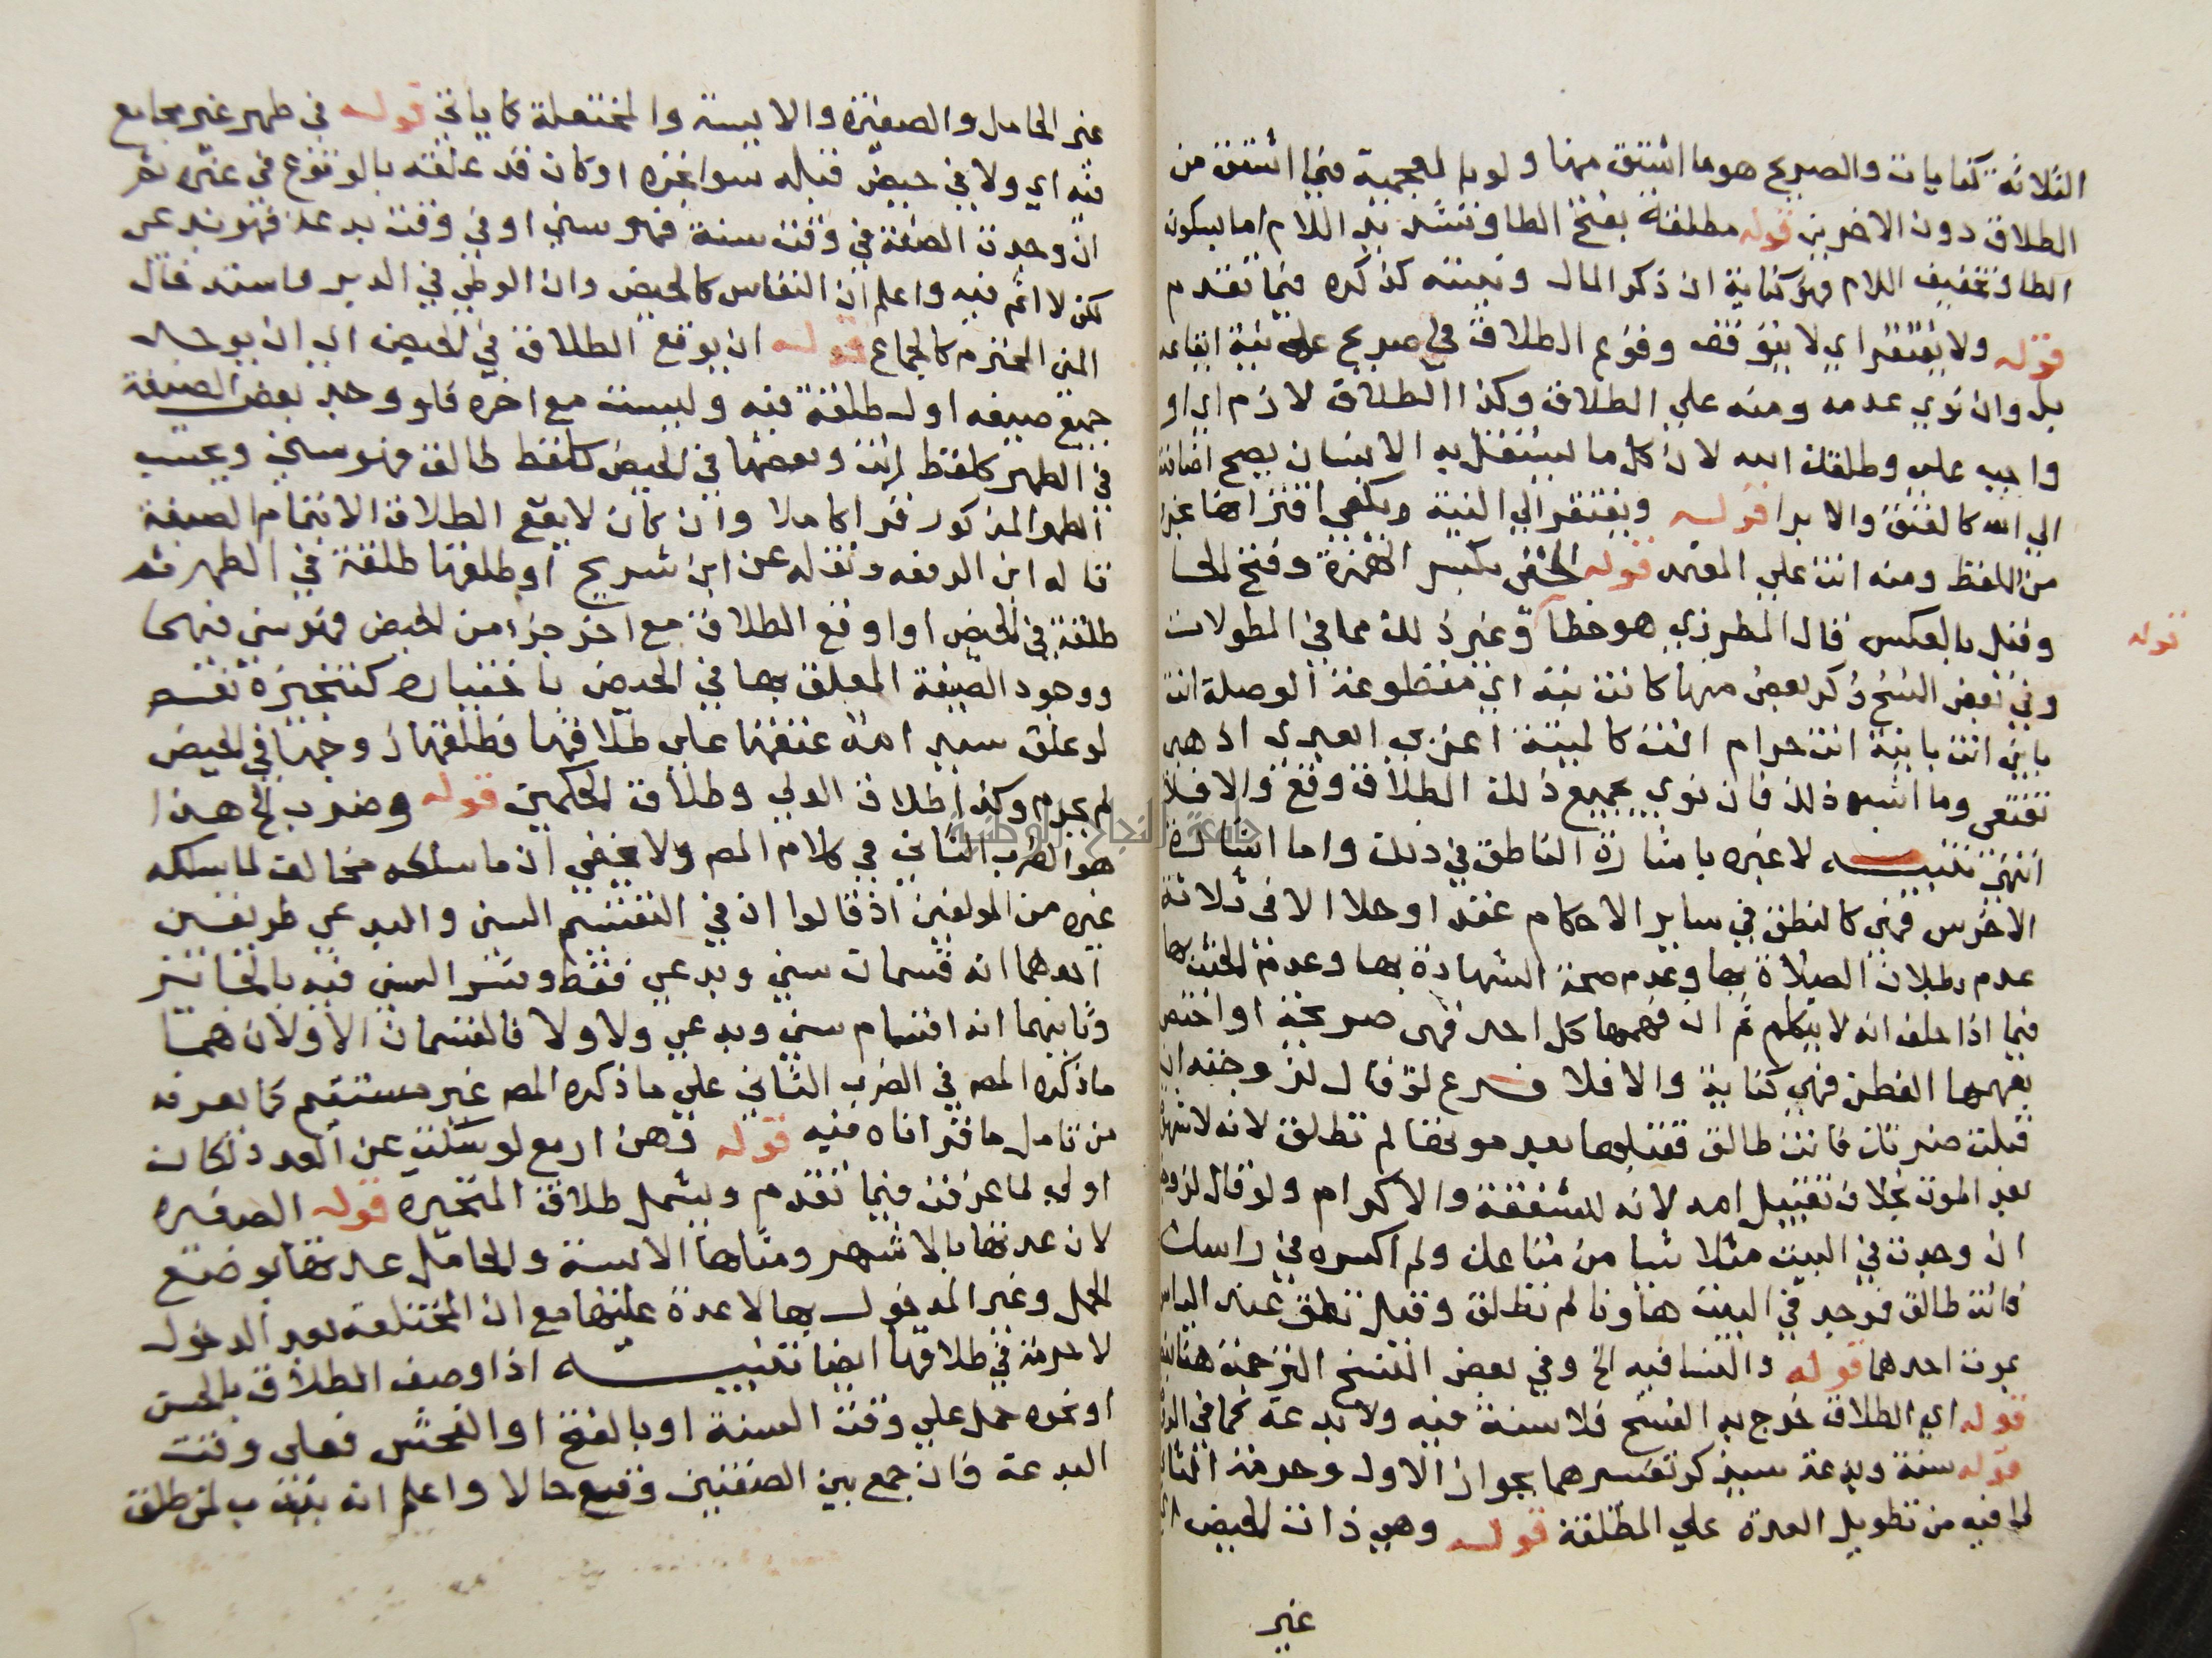 الثلاثة كنايات والصريح هو ما اشتق منها ولو بالعجمية فيما اشتق من
الطلاق دون الاخرين قوله مطلقة بفتح الطا وتشديد اللام اما بسكون
الطا وتخفيف اللام فهو كناية ان ذكر المال ونيته كذكره فيما تقدم
قوله ولا يفتقر اي لا يتوقف وقوع الطلاق في صريح على نية ايقاعه
بل وان نوي عدمه ومنه علي الطلاق وكذا الطلاق لازم لي او
واجب علي وطلقك الله لان كل ما يستقل به الانسان يصح اضافته
الي الله كالعتق والابرا قوله ويفتقر الي النية ويكفي اقترانها بجزء
من اللفظ ومنه انت علي المعتمد قوله الحقي بكسر الهمزة وفتح الحا
وقيل بالعكس قال المطرزي هو خطا وغير ذلك مما في المطولات
قوله
وفي بعض النسخ ذكر بعض منها كانت بتة اي مقطوعة الوصلة انت
باين انت باينة انت حرام انت كالميتة اغربي ابعدي اذهبي
تقنعي وما اشبه ذلك فان نوي بجميع ذلك الطلاق وقع والا فلا
انتهى تنبيه لا عبرة باشارة الناطق في ذلك واما اشارة
الاخرس فهي كالنطق في ساير الاحكام عقدا وحلا الا في ثلاثة
عدم بطلان الصلاة بها وعدم صحة الشهادة بها وعدم الحنث بها
فيما اذا حلف انه لا يتكلم ثم ان فهمها كل احد فهي صريحة او اختص
بفهمها الفطن فهي كناية والا فلا فرع لو قال لزوجته ان
قبلت ضرتك فانت طالق فقبلها بعد موتها لم تطلق لانه لا شهوة
بعد الموت بخلاف تقبيل امه لانه للشفقة والاكرام ولو قال لزوجته
ان وجدت في البيت مثلا شيا من متاعك ولم اكسره في راسك
فانت طالق فوجد في البيت هاونا لم تطلق وقيل تطلق عند الياس
بموت احدهما قوله والنسا فيه الخ وفي بعض النسخ الترجمة هنا
قوله اي الطلاق خرج به الفسخ فلا سنة فيه ولا بدعة كما في
قوله سنة وبدعة سيذكر تفسيرهما بجواز الاول وحرمة الثاني
لما فيه من تطويل العدة علي المطلقة قوله وهي ذات الحيض اي
غير
غير الحامل والصغيرة والايسة والمختلعة كما ياتي قوله في طهر غير مجامع
فيه اي ولا في حيض قبله سوا غيره او كان قد علقه بالوقوع في غيره ثم
ان وجدت الصفة في وقت سنة فهو سني او في وقت بدعة فهو بدعي
لكن لا اثم فيه واعلم ان النفاس كالحيض وان الوطي في الدبر واستدخال
المني المحترم كالجماع قوله ان يوقع الطلاق في الحيض اي ان يوجد
جميع صيغه اول طلقة فيه وليست مع اخره فلو وجد بعض الصيغة
في الطهر كلفظ انت وبعضها في الحيض كلفظ طالق فهو سني ويحسب
الطهر المذكور قرا كاملا وان كان لا يقع الطلاق الا بتمام الصيغة
قاله ابن الرفعه ونقله عن ابن شريح او طلقها طلقة في الطهر ثم
طلقة في الحيض او اوقع الطلاق مع اخر جزء من الحيض فهو سني فيهما
ووجود الصفة المعلق بها في الحيض باختياره كتنجيزه نفسه
لو علق سيد امة عتقها علي طلاقها فطلقها زوجها في الحيض
لم يحرم وكذا طلاق الولي وطلاق الحكمين قوله وضرب الخ هذا
هو الضرب الثاني في كلام المص ولا يخفي ان ما سلكه مخالف لما سلكه
غيره من المولفين اذ قالوا ان في التقسيم السني والبدعي طريقين
احدهما انه قسمان سني وبدعي فقط وفسر السني فيه بالجائز
وثانيهما انه اقسام سني وبدعي ولا ولا فالقسمان الاولان هما
ما ذكره المص في الضرب الثاني علي ما ذكره المص غير مستقيم كما يعرف
من تامل ما قررناه فيه قوله وهن اربع لو سكت عن العدد لكان
اولي لما عرفت فيما تقدم ويشمل طلاق المتحيرة قوله الصغيرة
لان عدتها بالاشهر ومثلها الايسة والحامل عدتها بوضع
الحمل وغير المدخول بها لا عدة عليها مع ان المختلعة بعد الدخول
لا حرمة في طلاقها ايضا تنبيه اذا وصف الطلاق بالحسن
او نحوه حمل علي وقت السنة او بالقبح او الفحش فعلى وقت
البدعة فان جمع بين الصفتين وقع حالا واعلم انه يندب لمن طلق